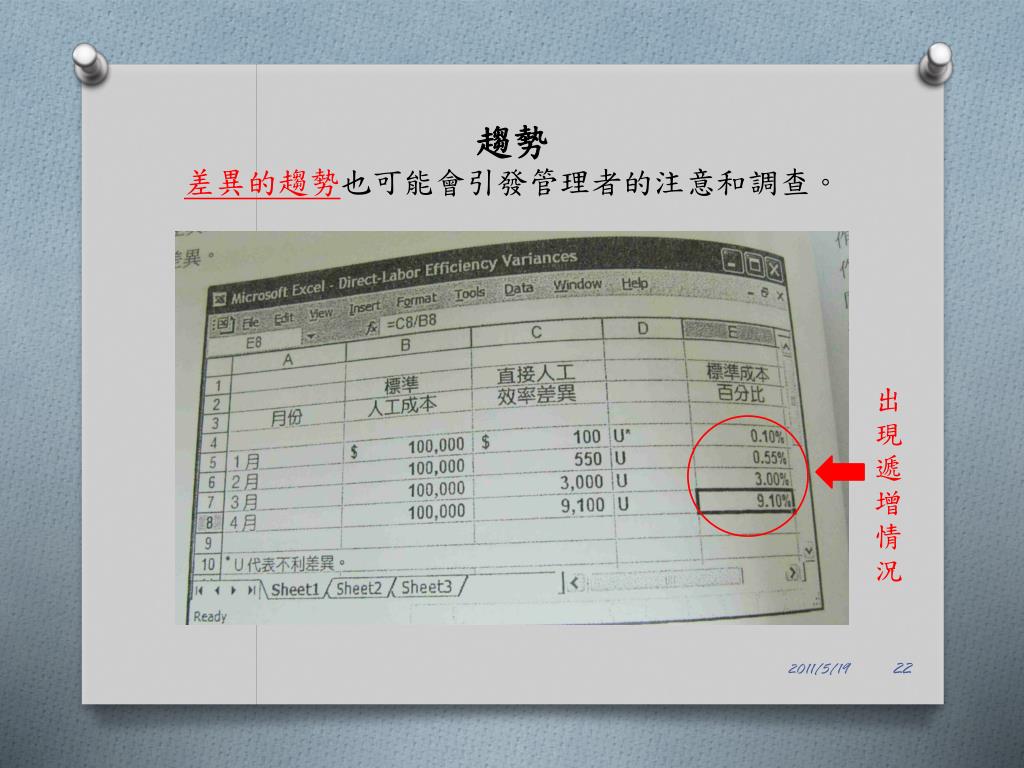 趨勢
差異的趨勢也可能會引發管理者的注意和調查。
差異。
Microsoft Excel - Direct-Labor Efficiency Variances
File Edit View Insert Format Tools Data Window Help
E8 fx =C8/B8
A B C D E
1 標準 直接人工 標準成本
2 人工成本 效率差異 百分比
3 月份
4
5 1月 $ 100,000 $ 100 U* 0.10%
6 2月 100,000 550 U 0.55%
7 3月 100,000 3,000 U 3.00%
8 4月 100,000 9,100 U 9.10%
9
10 *U代表不利差異。
Sheet1 Sheet2 Sheet3
Ready
出現遞增情況
2011/5/19 22